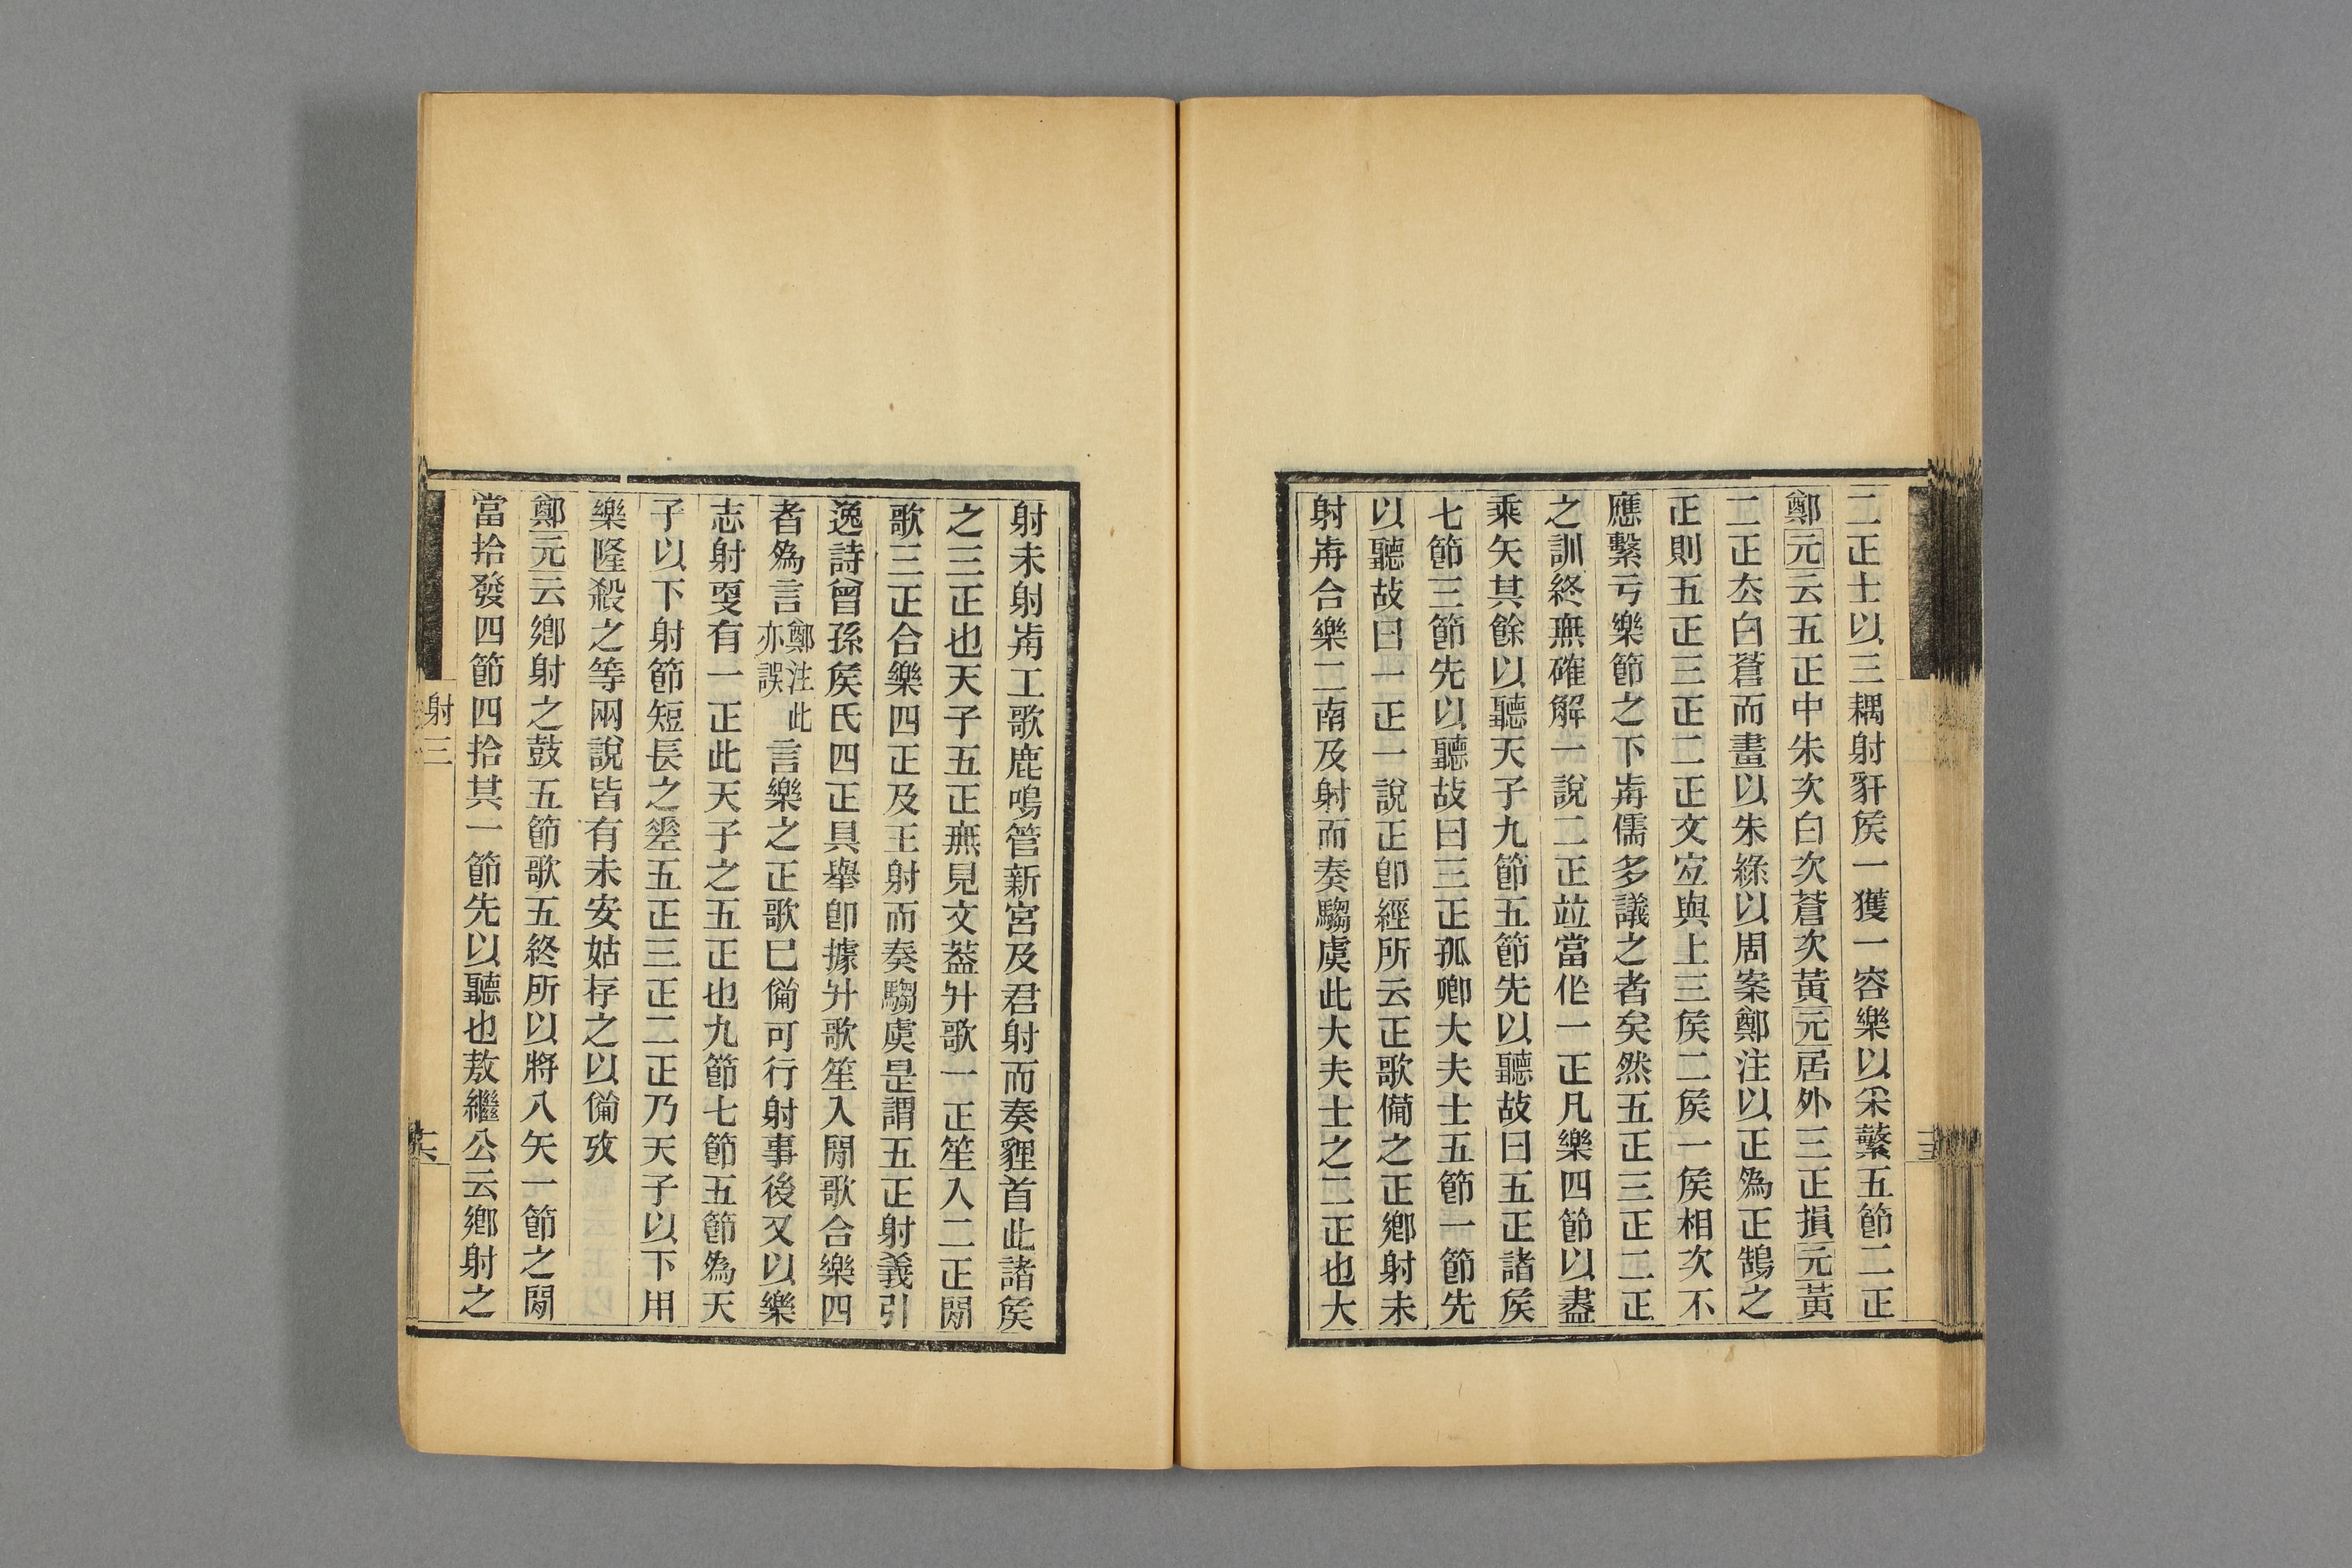 二正士以三耦射豻矦一獲一容樂以采蘩五節二正
鄭元云五正中朱次白次蒼次黃元居外三正損元黃
二正厺白蒼而畫以朱綠以周案鄭注以正爲正鵠之
正則五正三正二正文宐與上三矦二矦一矦相次不
應繫亏樂節之下歬儒多議之者矣然五正三正二正
之訓終無確解一說二正竝當作一正凡樂四節以盡
乘矢其餘以聽天子九節五節先以聽故曰五正諸矦
七節三節先以聽故曰三正孤卿大夫士五節一節先
以聽故曰一正一說正卽經所云正歌備之正鄕射未
射歬合樂二南及射而奏騶虞此大夫士之二正也大
射未射歬工歌鹿鳴管新宮及君射而奏貍首此諸矦
之三正也天子五正無見文葢升歌一正笙入二正閒
歌三正合樂四正及王射而奏騶虞是謂五正射義引
逸詩曾孫矦氏四正具舉卽據升歌笙入閒歌合樂四
者爲言鄭注此亦誤言樂之正歌巳備可行射事後又以樂
志射㪅有一正此天子之五正也九節七節五節爲天
子以下射節短長之差五正三正二正乃天子以下用
樂隆殺之等兩說皆有未安姑存之以備攷
鄭元云鄕射之鼓五節歌五終所以將八矢一節之閒
當拾發四節四拾其一節先以聽也敖繼公云鄕射之
射三